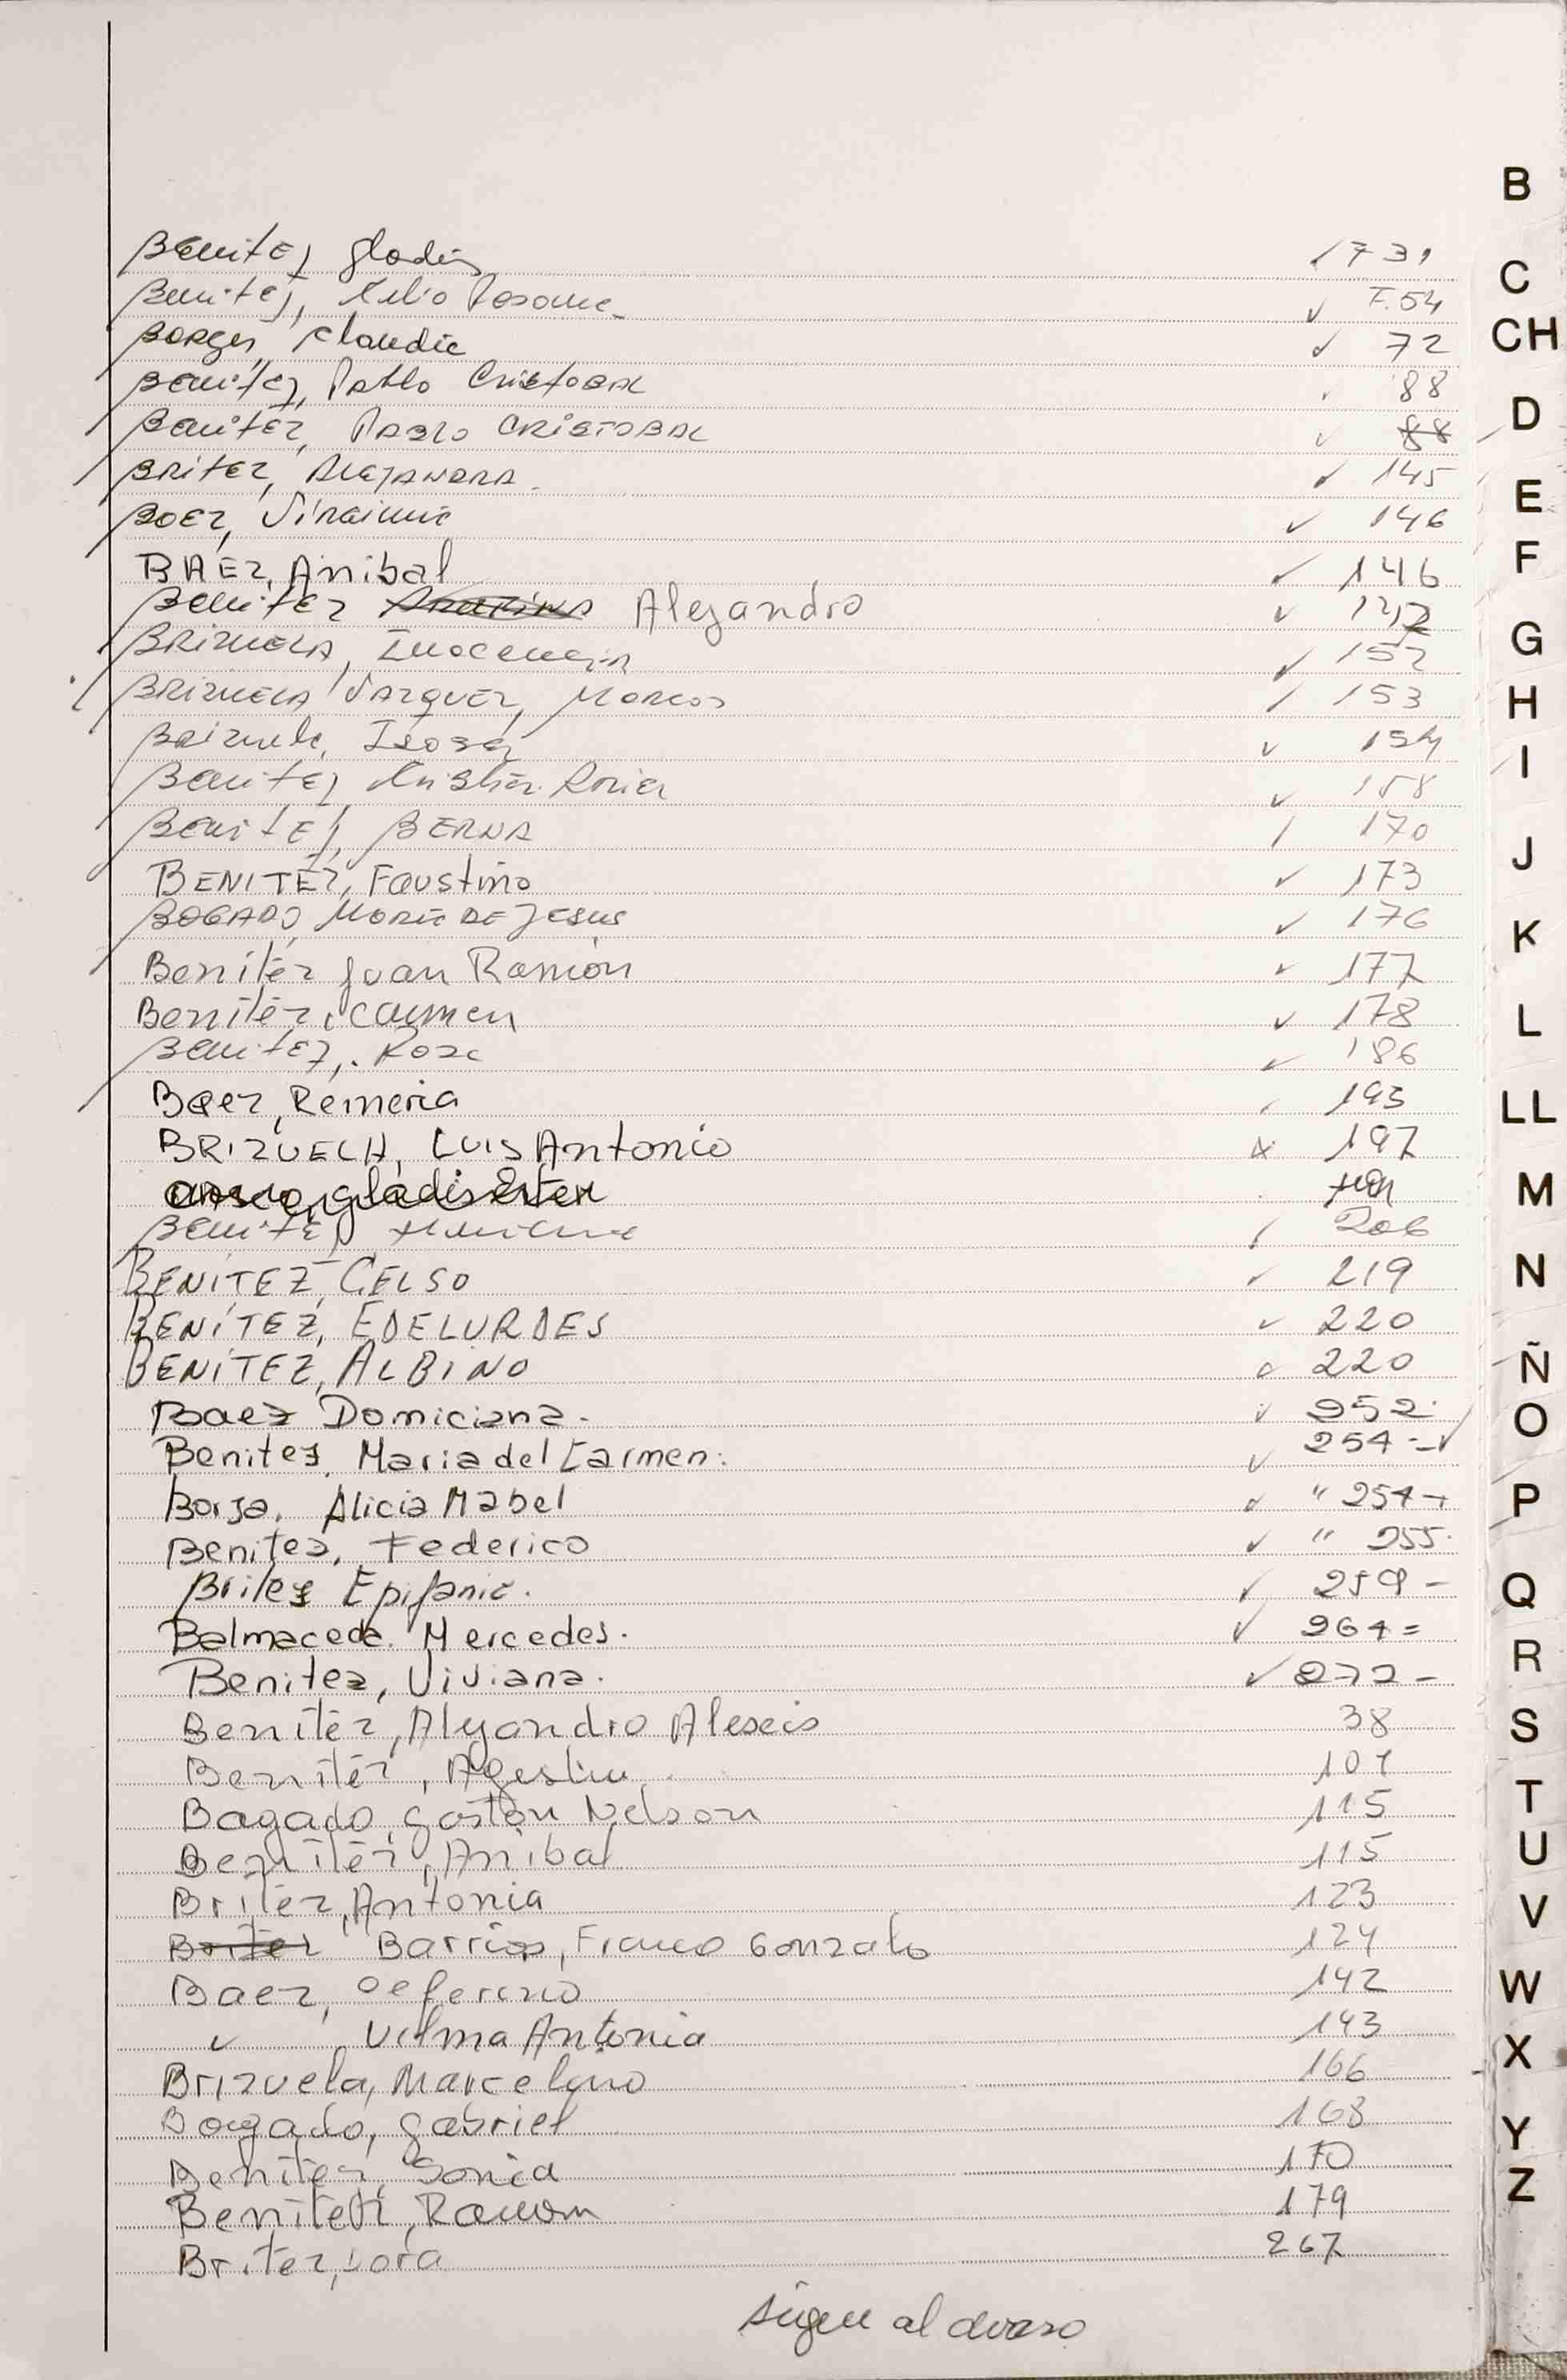 Benitez Gladis 1731
Benitez, F.54
Borges, Claudia ✓ 72
Benitez, Pablo Cristobal 88
Benitez, Pablo CRISTOBAL ✓ 88
BRITEZ, ALEJANDRA ✓ 145
BOEZ, Virginia ✓ 146
BAEZ, Anibal ✓ 146
Benitez Alejandro ✓
BRIZUELA, Inocencia ✓ 152
BRIZUELA VAZQUEZ, Marcos 153
Brizuela, ✓ 154
Benitez Cristian ✓ 158
Benitez, BERNA 170
BENITEZ, Faustino ✓ 173
BOGADO, Maria DE JESUS ✓ 176
Benitez Juan Ramón ✓ 177
Benitez, Carmen ✓ 178
Benitez, Rosa ✓ 186
Baez, Remeria 193
BRIZUELA, LUIS Antonio 197
Gladis Ester
Benitez 206
BENÍTEZ, CELSO ✓ 219
BENÍTEZ, EDELURDES ✓ 220
BENÍTEZ, ALBINO 220
Baez Domiciana. ✓ 252.
Benitez, Maria del Carmen. ✓ 254 - ✓
Borja, Alicia Mabel ✓ " 254 -
Benitez, Federico ✓ " 255.
Britez Epifania. ✓ 259 -
Balmaceda. Mercedes. ✓ 264 =
Benitez, Viviana. ✓ 272 -
Benitez, Alejandro Alexeis 38
Benitez, Agustin 107
Bagado, Gastón Nelson 115
Benitez, Anibal 115
Britez, Antonia 123
Britez Barrios, Franco Gonzalo 124
Baez, Ceferino 142
✓ Vilma Antonia 143
Brizuela, Marcelino 166
Bogado, Gabriel 168
Benitez, Sonia 170
Benitez, Ramon 179
Britez, Lora 267
Siguen al dorso
B
C
CH
D
E
F
G
H
I
J
K
L
LL
M
N
Ñ
O
P
Q
R
S
T
U
V
W
X
Y
Z